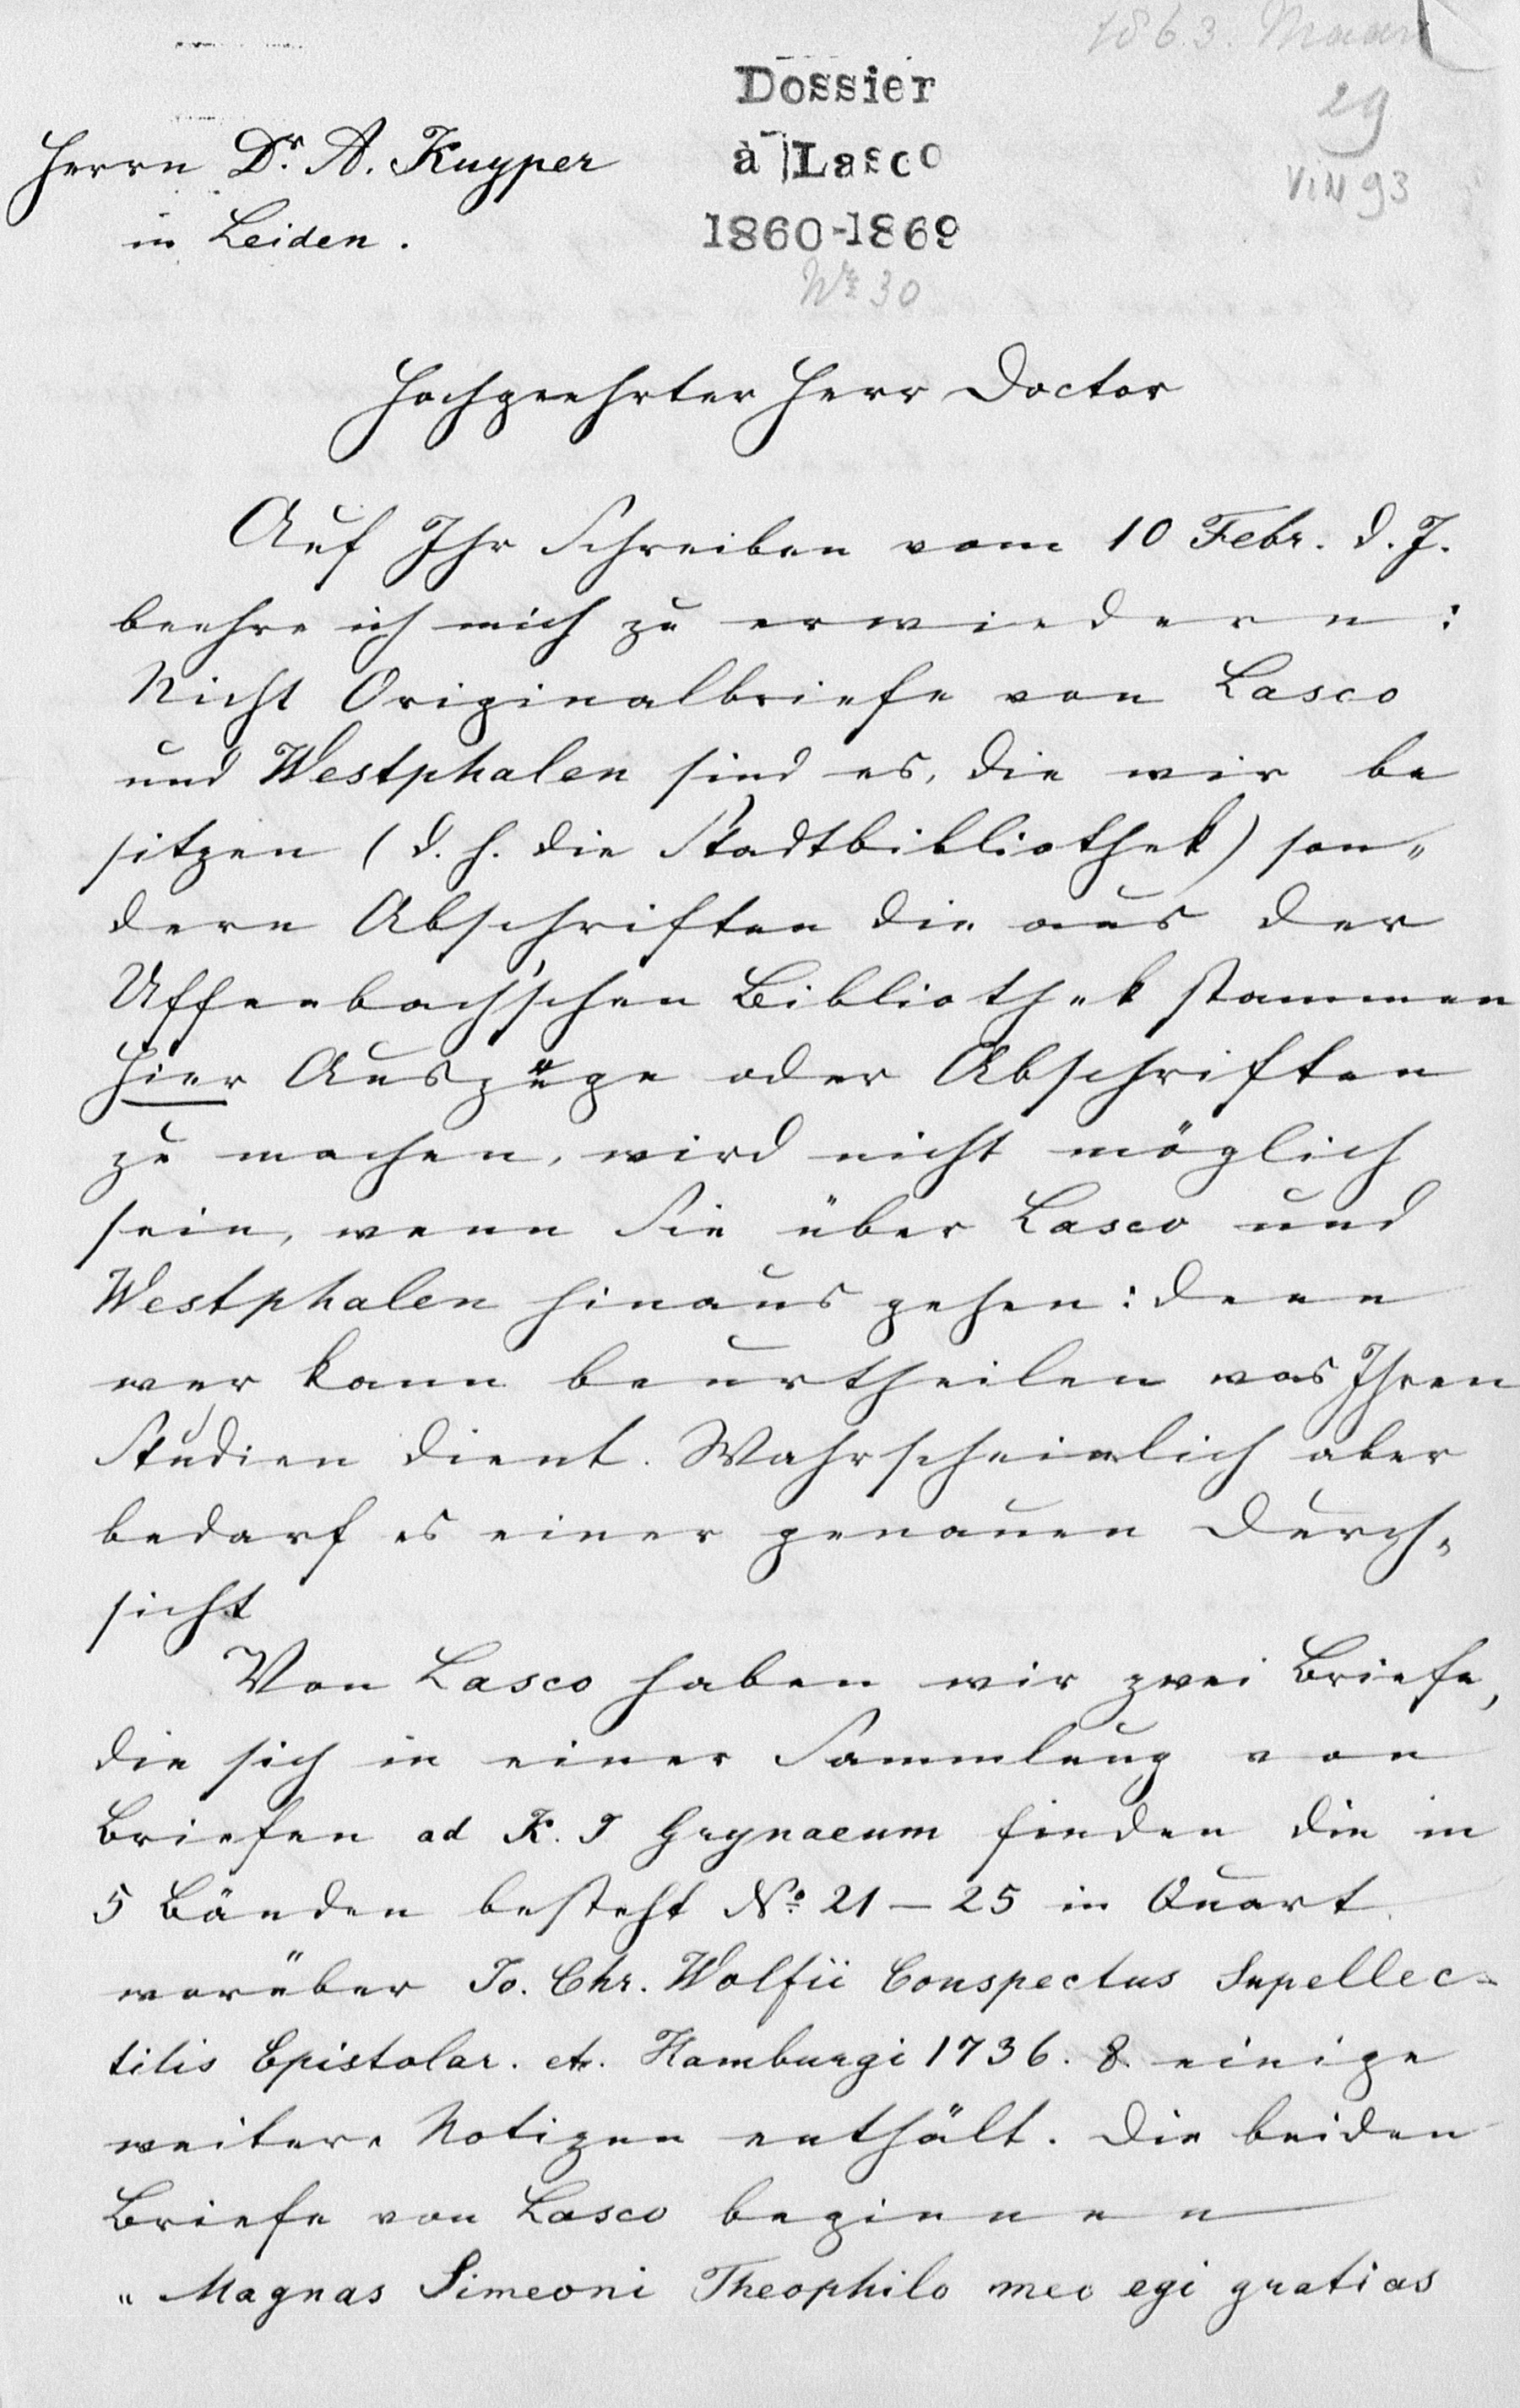 1863. Maart
Dossier
29
Herrn Dr. A. Kuyper
à Lasco
VIII 93
in Leiden.
1860-1869
No 30
Hochgeehrter Herr Doctor
Auf Ihr Schreiben vom 10 Febr. d. J.
beehre ich mich zu erwiedern:
Nicht Originalbriefe von Lasco
und Westphalen sind es, die wir be
sitzen (d. h. die Stadtbibliothek) son„
dern Abschriften die aus der
Uffenbach'schen Bibliothek stammen
Hier Auszüge oder Abschriften
zu machen, wird nicht möglich
sein, wenn Sie über Lasco und
Westphalen hinaus gehen: denn
wer kann beurtheilen was Ihren
Studien dient. Wahrscheinlich aber
bedarf es einer genauen Durch„
sicht
Von Lasco haben wir zwei Briefe,
die sich in einer Sammlung von
Briefen ad K. J Grynaeum finden die in
5 Bänden besteht No. 21 – 25 in Quart
worüber Jo. Chr. Wolfii Conspectus Supellec-
tilis Epistolar. etc. Hamburgi 1736. 8. einige
weitere Notizen enthält. Die beiden
Briefe von Lasco beginnen
„ Magnas Simeoni Theophilo meo egi gratias